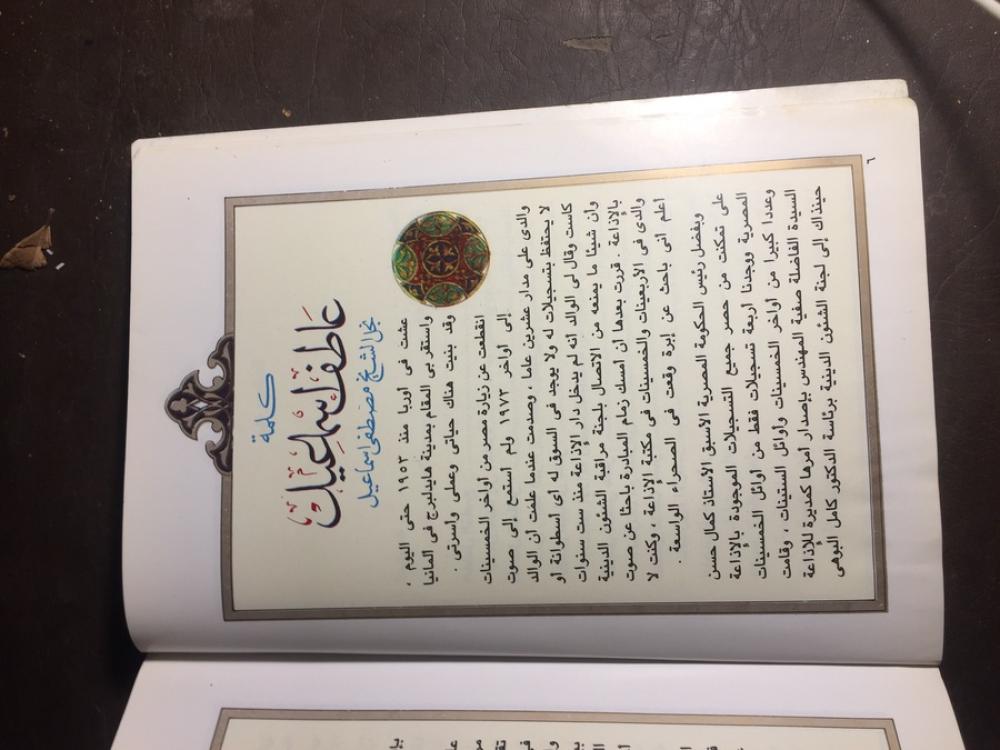 كلمة
عاطف إسماعيل
نجل الشيخ مصطفى إسماعيل
عشت فى أوربا منذ ١٩٥٣ حتى اليوم ،
واستقر بى المقام بمدينة هايدلبرج فى ألمانيا
وقد بنيت هناك حياتى وعملى وأسرتى .
انقطعت عن زيارة مصر من أواخر الخمسينات
إلى أواخر ١٩٧٢ ولم أستمع إلى صوت
والدى على مدار عشرين عاما ، وصدمت عندما علمت أن الوالد
لا يحتفظ بتسجيلات له ولا يوجد فى السوق له أى أسطوانة أو
كاست وقال لى الوالد أنه لم يدخل دار الإذاعة منذ ست سنوات
وأن شيئا ما يمنعه من الاتصال بلجنة مراقبة الشئون الدينية
بالإذاعة . قررت بعدها أن أمسك زمام المبادرة باحثا عن صوت
والدى فى الأربعينات والخمسينات فى مكتبة الإذاعة ، وكنت لا
أعلم أنى باحث عن إبرة وقعت فى الصحراء الواسعة .
وبفضل رئيس الحكومة المصرية الأسبق الأستاذ كمال حسن
على تمكنت من حصر جميع التسجيلات الموجودة بالإذاعة
المصرية ووجدنا أربعة تسجيلات فقط من أوائل الخمسينات
وعددا كبيرا من أواخر الخمسينات وأوائل الستينات ، وقامت
السيدة الفاضلة صفية المهندس بإصدار أمرها كمديرة للإذاعة
حينذاك إلى لجنة الشئون الدينية برئاسة الدكتور كامل البوهى
٦